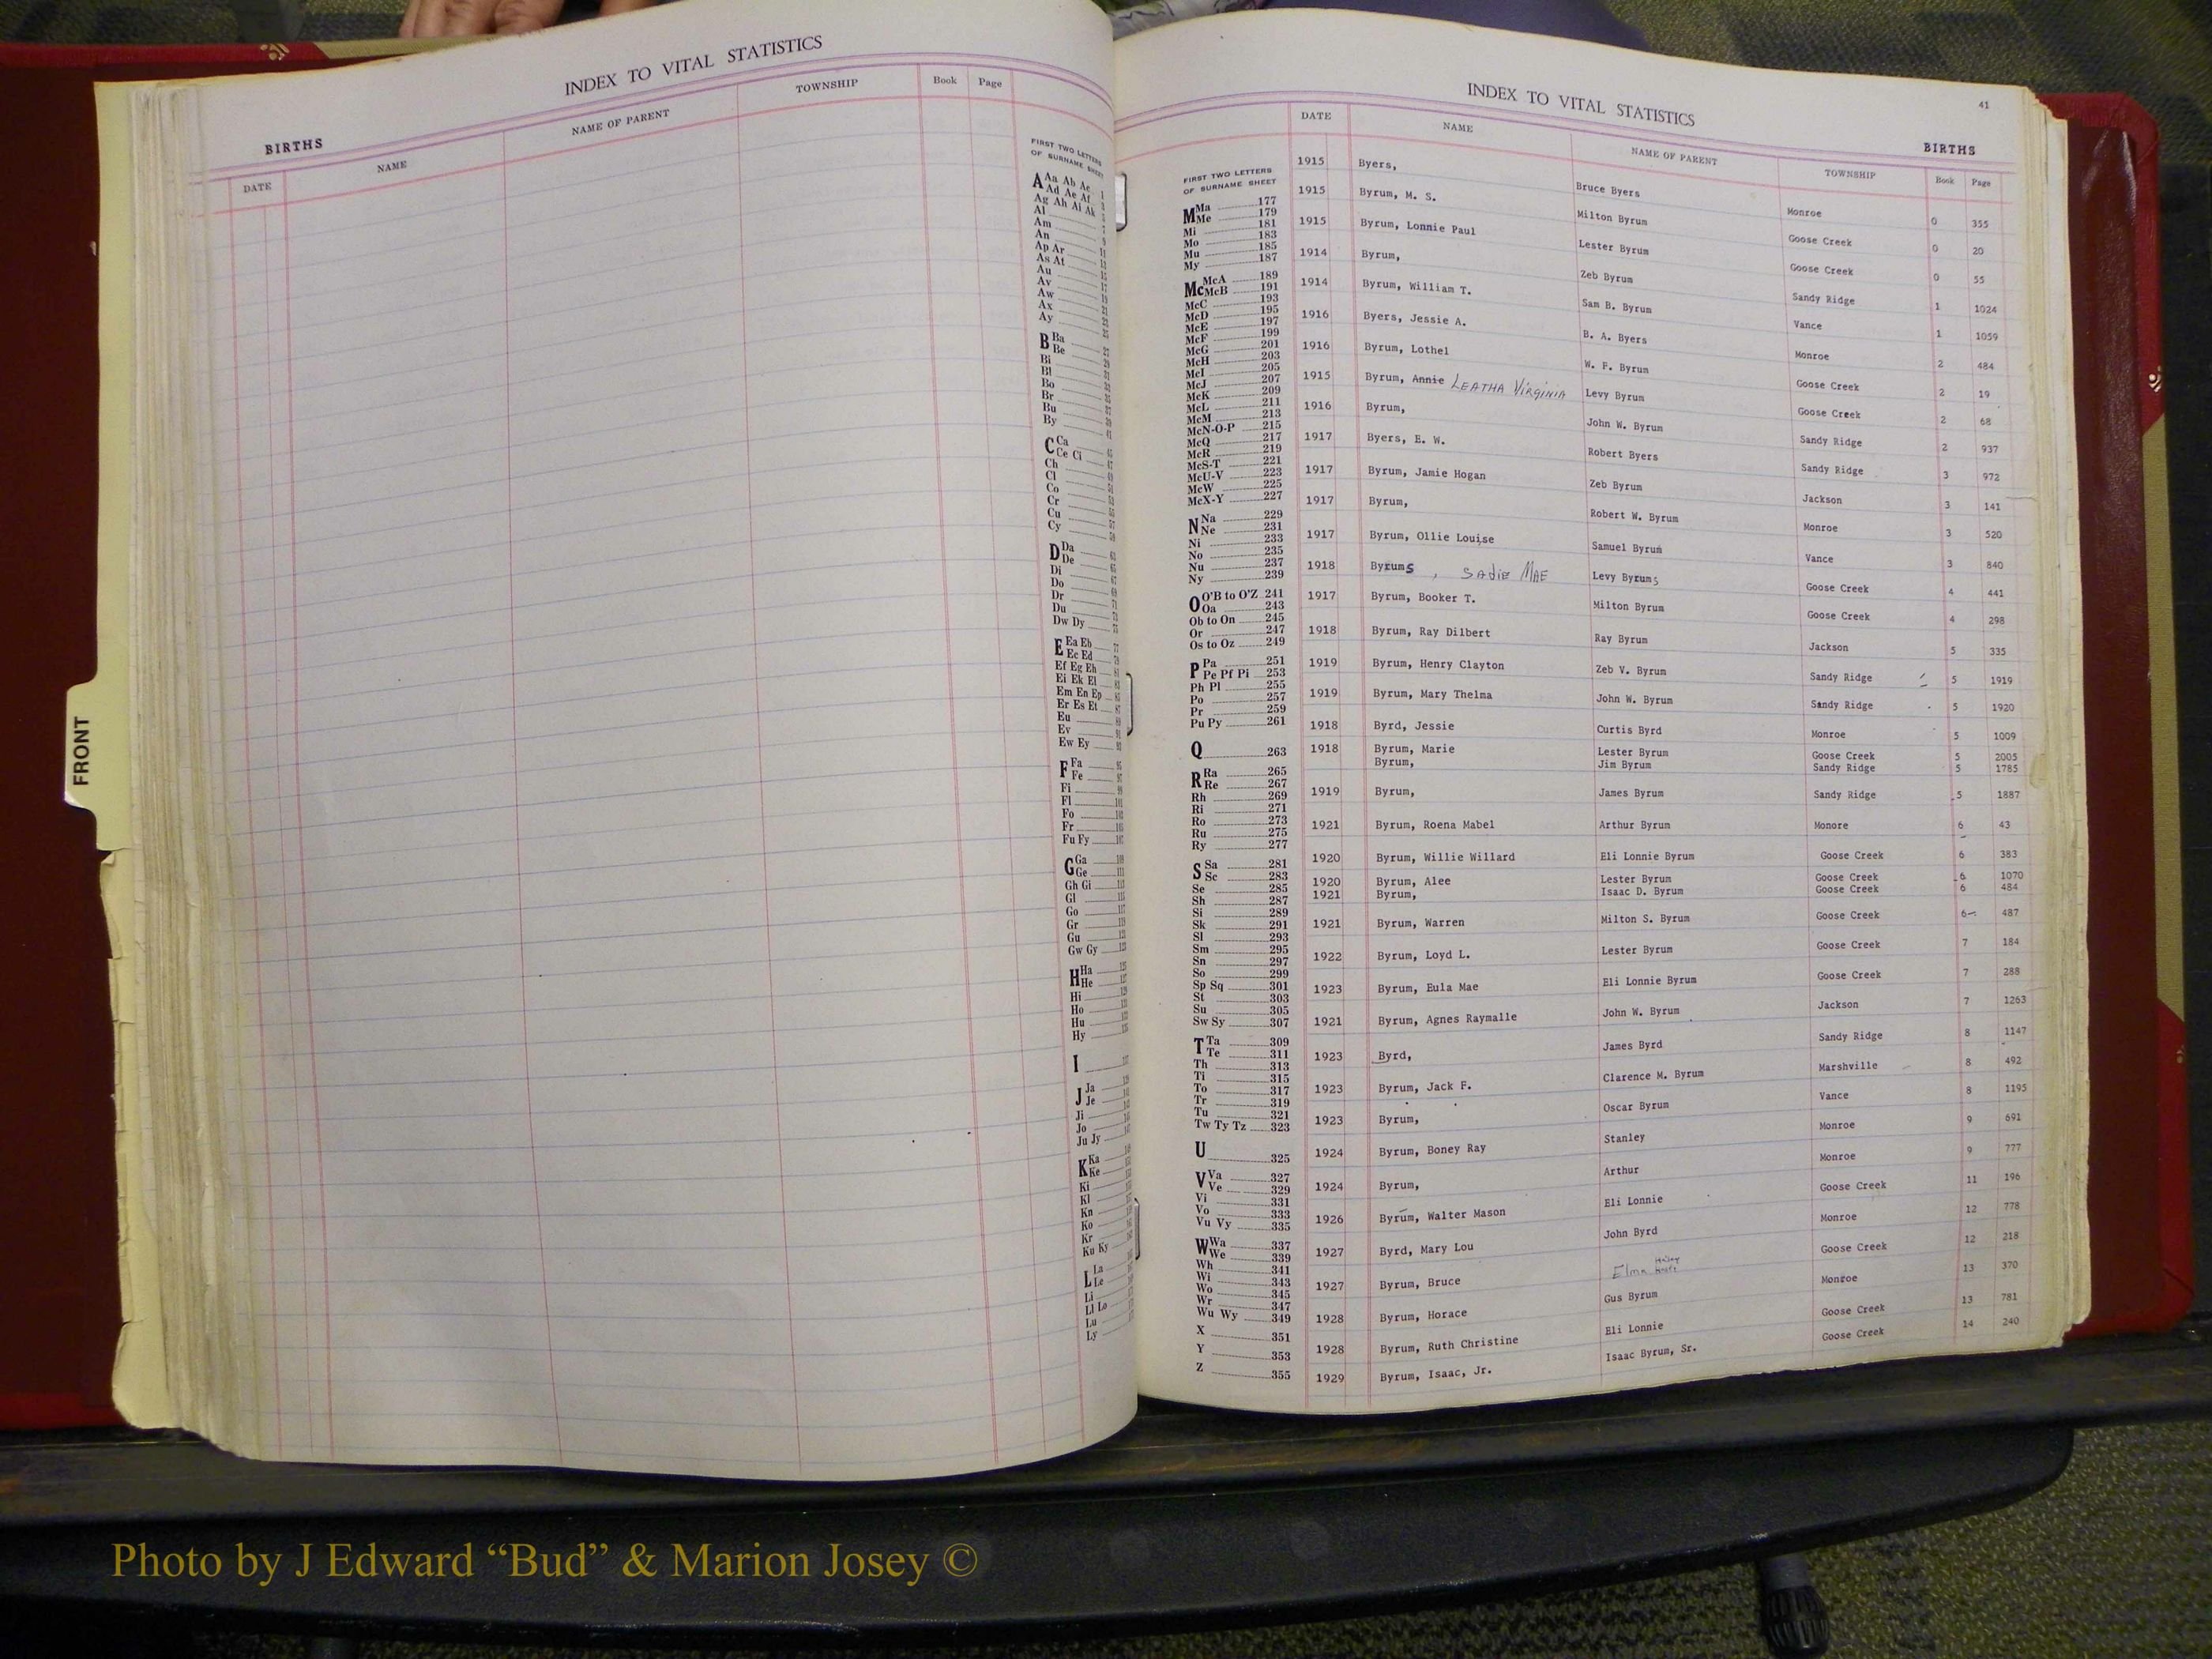 INDEX TO VITAL STATISTICS
BIRTHS
DATE NAME NAME OF PARENT TOWNSHIP Book Page
FIRST TWO LETTERS
OF SURNAME SHEET
A Aa Ab Ac
Ad Ae Af
Ag Ah Ai Ak
Al
Am
An
Ap Ar
As At
Au
Av
Aw
Ax
Ay
B Ba
Be
Bi
Bl
Bo
Br
Bu
By
C Ca
Ce Ci
Ch
Cl
Co
Cr
Cu
Cy
D Da
De
Di
Do
Dr
Du
Dw Dy
E Ea Eb
Ec Ed
Ef Eg Eh
Ei Ek El
Em En Ep
Er Es Et
Eu
Ev
Ew Ey
F Fa
Fe
Fi
Fl
Fo
Fr
Fu Fy
G Ga
Ge
Gh Gi
Gl
Go
Gr
Gu
Gw Gy
H Ha
He
Hi
Ho
Hu
Hy
I
J Ja
Je
Ji
Jo
Ju Jy
K Ka
Ke
Ki
Kl
Kn
Ko
Kr
Ku Ky
L La
Le
Li
Ll Lo
Lu
Ly
FRONT
INDEX TO VITAL STATISTICS
41
BIRTHS
DATE NAME NAME OF PARENT TOWNSHIP Book Page
FIRST TWO LETTERS
OF SURNAME SHEET
M Ma 177
Me 179
Mi 181
Mo 183
Mu 185
My 187
Mc McA 189
McB 191
McC 193
McD 195
McE 197
McF 199
McG 201
McH 203
McI 205
McJ 207
McK 209
McL 211
McM 213
McN-O-P 215
McQ 217
McR 219
McS-T 221
McU-V 223
McW 225
McX-Y 227
N Na 229
Ne 231
Ni 233
No 235
Nu 237
Ny 239
O O'B to O'Z 241
Oa 243
Ob to On 245
Or 247
Os to Oz 249
P Pa 251
Pe Pf Pi 253
Ph Pl 255
Po 257
Pr 259
Pu Py 261
Q 263
R Ra 265
Re 267
Rh 269
Ri 271
Ro 273
Ru 275
Ry 277
S Sa 281
Sc 283
Se 285
Sh 287
Si 289
Sk 291
Sl 293
Sm 295
Sn 297
So 299
Sp Sq 301
St 303
Su 305
Sw Sy 307
T Ta 309
Te 311
Th 313
Ti 315
To 317
Tr 319
Tu 321
Tw Ty Tz 323
U 325
V Va 327
Ve 329
Vi 331
Vo 333
Vu Vy 335
W Wa 337
We 339
Wh 341
Wi 343
Wo 345
Wr 347
Wu Wy 349
X 351
Y 353
Z 355
1915 Byers, Bruce Byers Monroe 0 355
1915 Byrum, M. S. Milton Byrum Goose Creek 0 20
1915 Byrum, Lonnie Paul Lester Byrum Goose Creek 0 55
1914 Byrum, Zeb Byrum Sandy Ridge 1 1024
1914 Byrum, William T. Sam B. Byrum Vance 1 1059
1916 Byers, Jessie A. B. A. Byers Monroe 2 484
1916 Byrum, Lothel W. F. Byrum Goose Creek 2 19
1915 Byrum, Annie LEATHA VIRGINIA Levy Byrum Goose Creek 2 68
1916 Byrum, John W. Byrum Sandy Ridge 2 937
1917 Byers, E. W. Robert Byers Sandy Ridge 3 972
1917 Byrum, Jamie Hogan Zeb Byrum Jackson 3 141
1917 Byrum, Robert W. Byrum Monroe 3 520
1917 Byrum, Ollie Louise Samuel Byrum Vance 3 840
1918 Byrums, SADIE MAE Levy Byrums Goose Creek 4 441
1917 Byrum, Booker T. Milton Byrum Goose Creek 4 298
1918 Byrum, Ray Dilbert Ray Byrum Jackson 5 335
1919 Byrum, Henry Clayton Zeb V. Byrum Sandy Ridge 5 1919
1919 Byrum, Mary Thelma John W. Byrum Sandy Ridge 5 1920
1918 Byrd, Jessie Curtis Byrd Monroe 5 1009
1918 Byrum, Marie Lester Byrum Goose Creek 5 2005
Byrum, Jim Byrum Sandy Ridge 5 1785
1919 Byrum, James Byrum Sandy Ridge 5 1887
1921 Byrum, Roena Mabel Arthur Byrum Monore 6 43
1920 Byrum, Willie Willard Eli Lonnie Byrum Goose Creek 6 383
1920 Byrum, Alee Lester Byrum Goose Creek 6 1070
1921 Byrum, Isaac D. Byrum Goose Creek 6 484
1921 Byrum, Warren Milton S. Byrum Goose Creek 6 487
1922 Byrum, Loyd L. Lester Byrum Goose Creek 7 184
1923 Byrum, Eula Mae Eli Lonnie Byrum Goose Creek 7 288
1921 Byrum, Agnes Raymalle John W. Byrum Jackson 7 1263
1923 Byrd, James Byrd Sandy Ridge 8 1147
1923 Byrum, Jack F. Clarence M. Byrum Marshville 8 492
1923 Byrum, Oscar Byrum Vance 8 1195
1924 Byrum, Boney Ray Stanley Monroe 9 691
1924 Byrum, Arthur Monroe 9 777
1926 Byrum, Walter Mason Eli Lonnie Goose Creek 11 196
1927 Byrd, Mary Lou John Byrd Monroe 12 778
1927 Byrum, Bruce Elma Goose Creek 12 218
1928 Byrum, Horace Gus Byrum Monroe 13 370
1928 Byrum, Ruth Christine Eli Lonnie Goose Creek 13 781
1929 Byrum, Isaac, Jr. Isaac Byrum, Sr. Goose Creek 14 240
Photo by J Edward “Bud” & Marion Josey ©